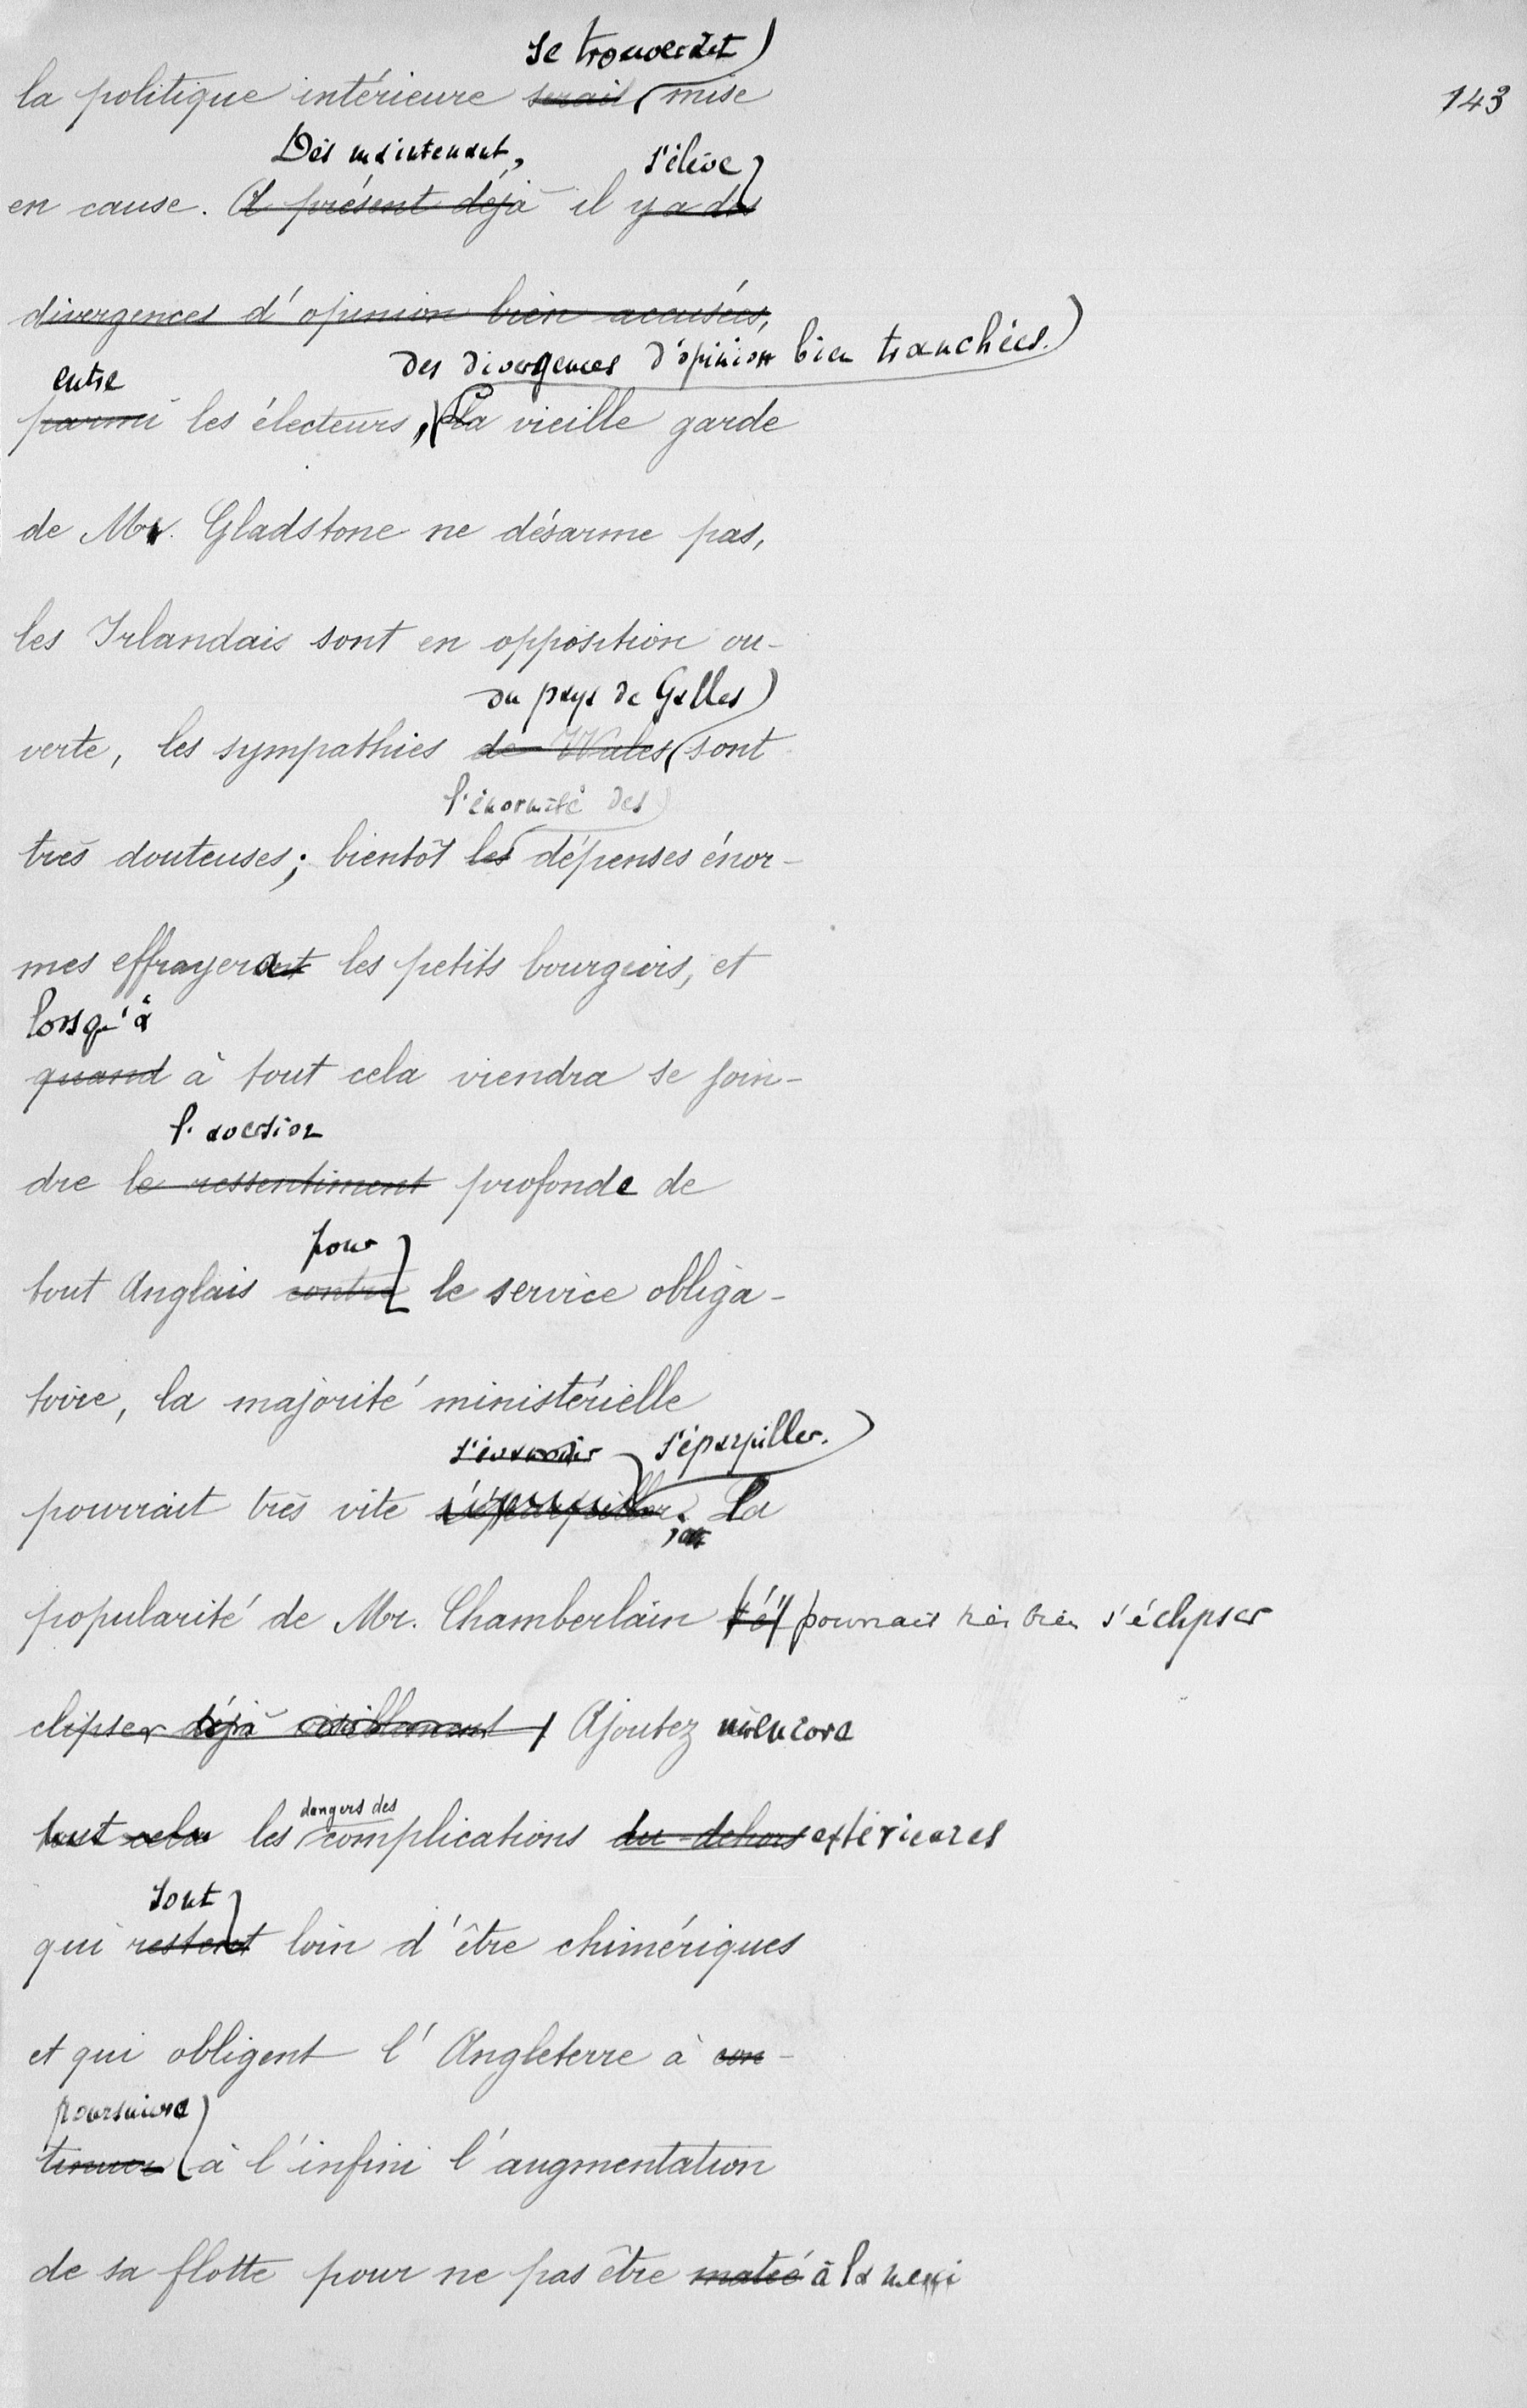 se trouverait
la politique intérieure serait mise
143
Dès maintenant, s'élève
en cause. A présent déjà il y a des
divergences d'opinion bien accusées,
des divergences d'opinion bien tranchées.
entre
parmi les électeurs, la vieille garde
de Mr. Gladstone ne désarme pas,
les Irlandais sont en opposition ou-
du pays de Galles
verte, les sympathies de Wales sont
l'énormité des
très douteuses; bientôt les dépenses énor-
mes effrayera les petits bourgeois, et
lorsqu'à
quand à tout cela viendra se join-
l'aversion
dre le ressentiment profonde de
pour
tout Anglais contre le service obliga-
toire, la majorité ministérielle
s'éparpiller.
pourrait très vite s'éparpiller. La
popularité de Mr. Chamberlain s'é pourrait très bien s'éclipser
clipser déjà visiblement. Ajoutez encore
dangers des
tout cela les complications du dehors extérieures
sont
qui restent loin d'être chimériques
et qui obligent l'Angleterre à con-
poursuivre
tinuer à l'infini l'augmentation
de sa flotte pour ne pas être à la